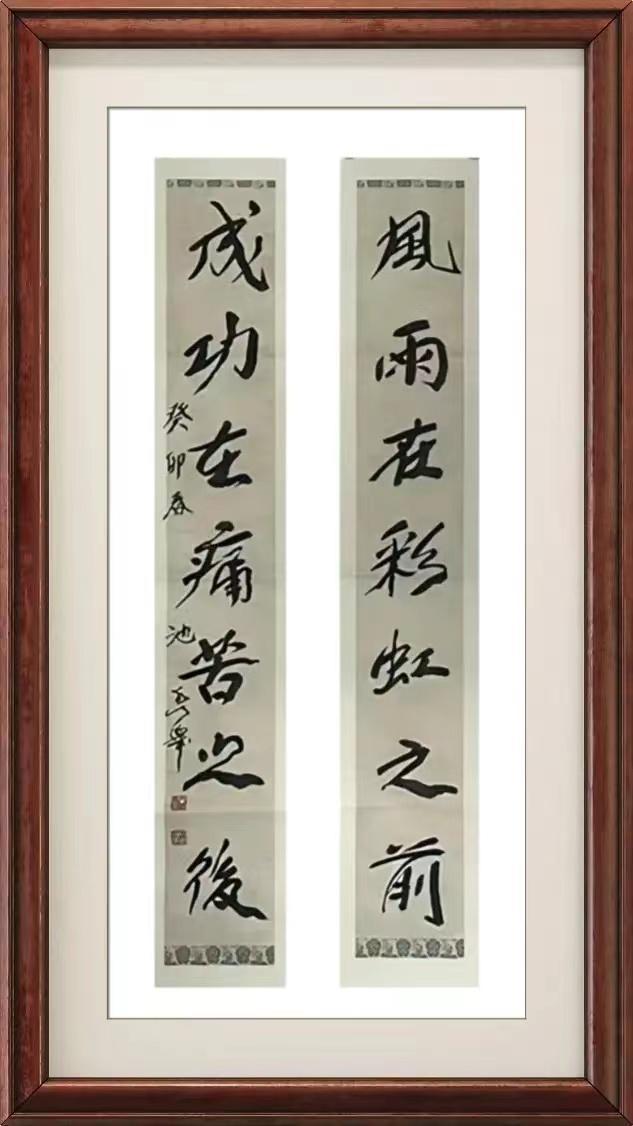 風雨在彩虹之前
成功在痛苦之後
癸卯春
池